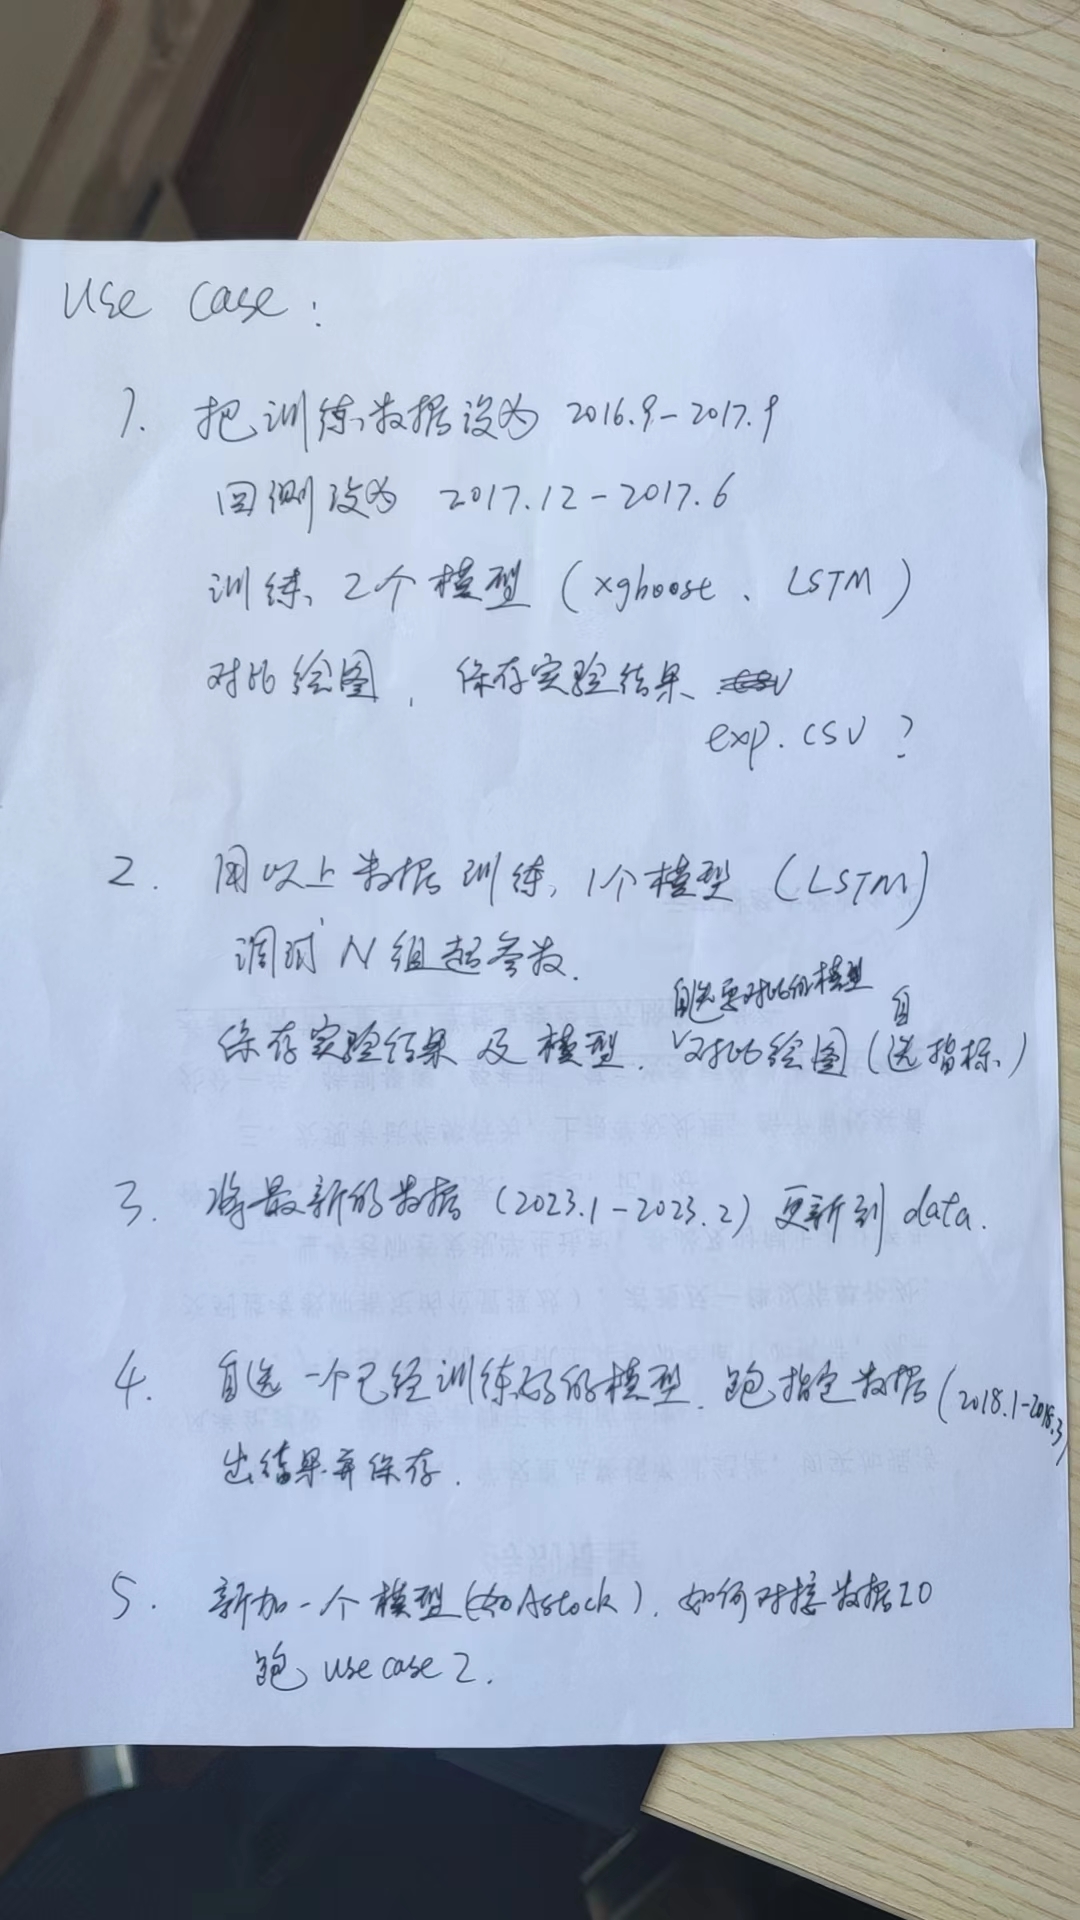 Use Case:
1. 把训练数据设为 2016.9-2017.9
回测设为 2017.12-2017.6
训练 2个模型 (xgboost、LSTM)
对比绘图，保存实验结果
exp.csv?
2. 用以上数据训练 1个模型 (LSTM)
调试 N组超参数.
自选要对比的模型
保存实验结果及模型. 对比绘图 (自选指标)
3. 将最新的数据 (2023.1-2023.2) 更新到 data.
4. 自选一个已经训练好的模型. 跑指定数据 (2018.1-2018.3)
出结果并保存.
5. 新加一个模型 (如Astock). 如何对接数据IO
跑 use case 2.